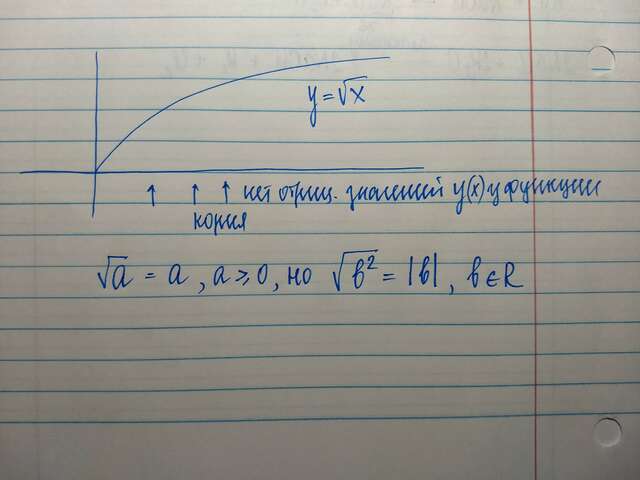 y = √x
↑ ↑ ↑ нет отриц. значений y(x) у функции
корня
√a = a, a ≥ 0, но √b² = |b|, b ∈ R